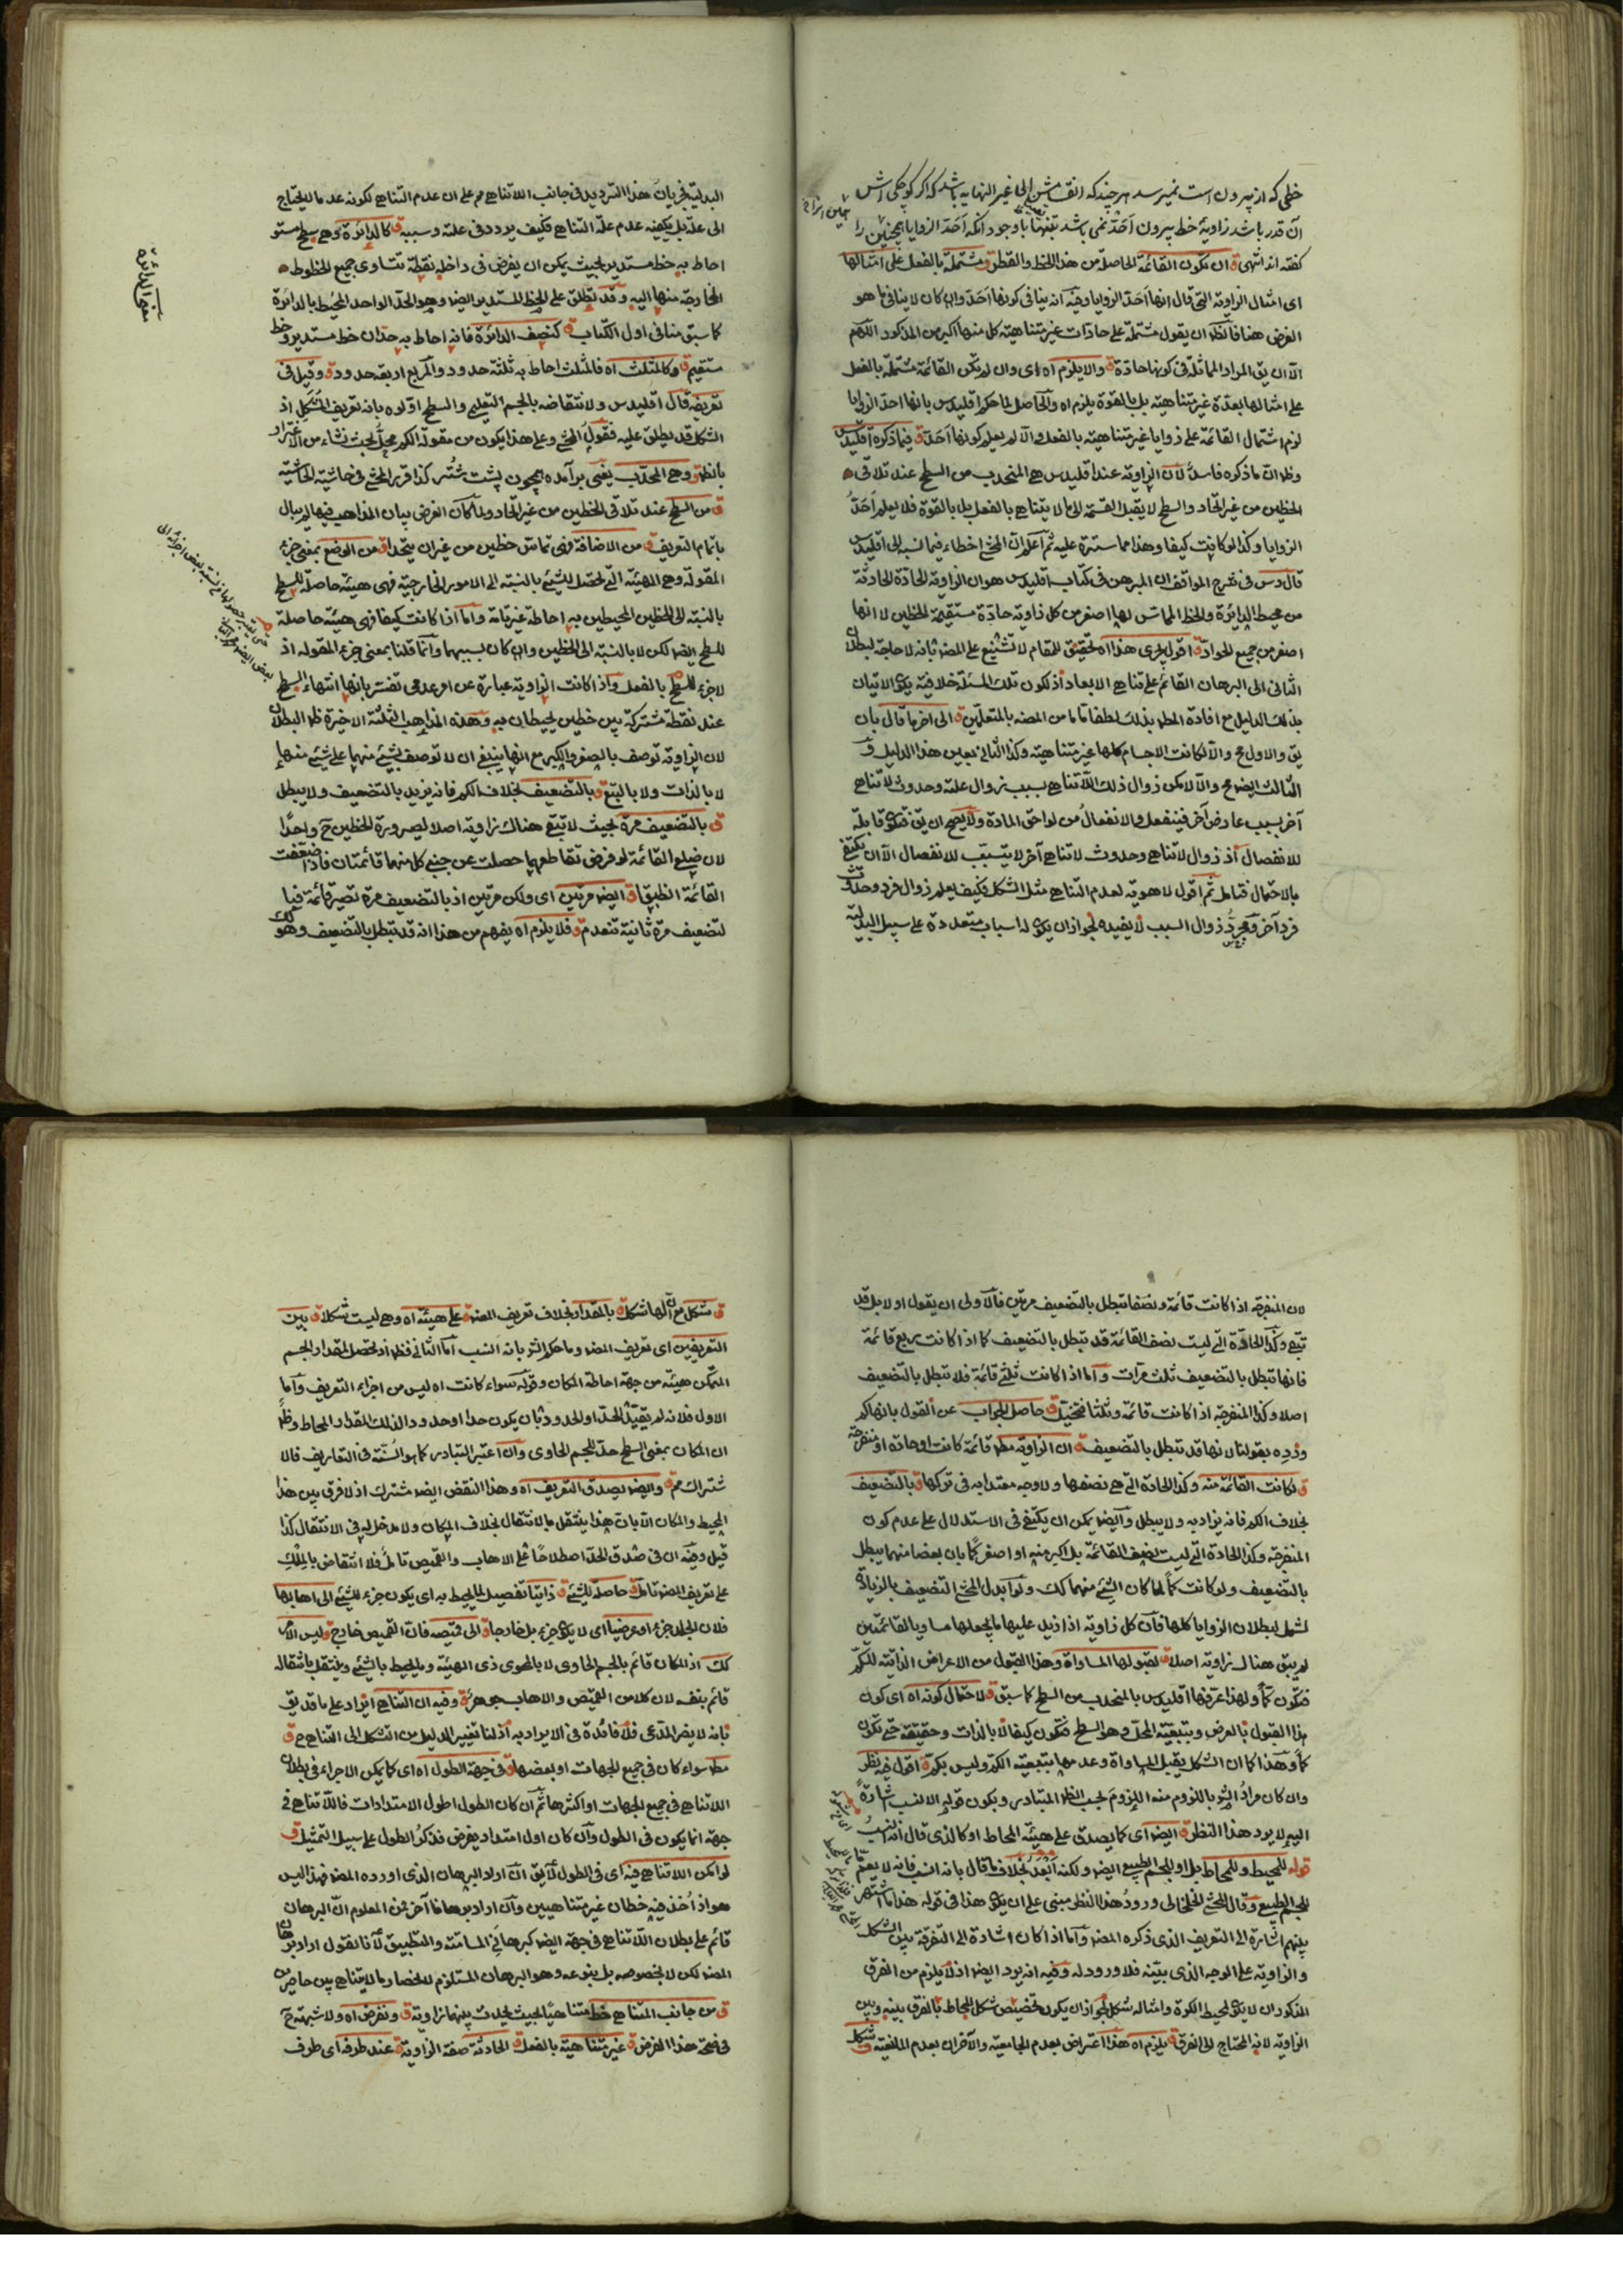 خطی که از بیرون است نمیرسد هرچند که انقسامش الی غیر النهایه باشد که اکر کوچکی اش
آن قدر باشد زاویهٔ خط بیرون اَحَدّ نمی باشد با وجود انکه اَحَدّ الزوایا همچنین را
کفته اند انتهی ق ان تکون القائمة الحاصلة من هذا الخط والقطر ق مشتملة بالفعل علی امثالها
ای امثال الزاویة التی قال انها اَحَدّ الزوایا وفیه انه ینافی کونها اَحَدّ وان کان لا ینافی ما هو
الغرض هنا فالظ ان یقول مشتملة علی حادّات غیر متناهیة کل منها اکبر من المذکور اللهم
الا ان یق المراد المماثلة فی کونها حادّة ق والا یلزم اه ای وان لم یکن القائمة مشتملة بالفعل
علی امثالها بعدّة غیر متناهیة بل بالقوة یلزم اه والحاصل لما حکم اقلیدس بانها احدّ الزوایا
لزم اشتمال القائمة علی زوایا غیر متناهیة بالفعل والا لم یعلم کونها اَحَدّ ق فیما ذکره اقلیدس
وظ ان ما ذکره فاسدٌ لان الزاویة عند اقلیدس هی المنحدب من السطح عند تلاقی
الخطین من غیر اتحاد والسطح لا یقبل القسمة الی ما لا یتناهی بالفعل بل بالقوة فلا یعلم اَحَدُّ
الزوایا وکذا لو کانت کیفا وهذا مما سترة علیه ثم اعلم ان المحشی اخطاء فیما نسب الی اقلیدس
قال دس فی شرح المواقف ان المبرهن فی کتاب اقلیدس هو ان الزاویة الحادّة الحادثة
من محیط الدائرة والخط المماس لها اصغر من کل زاویة حادّة مستقیمة الخطین لا انها
اصغر من جمیع الحوادّ ق اقول یجری هذا اه تحقیق للمقام لا تشنیع علی المصـ فانه لا حاجة لبطلان
الثانی الی البرهان القائم علی تناهی الابعاد اذ لکون تلک المسئلة خلافیة یکون الاتیان
بذلک الدلیل مع افادة المطـ بذلک لطفا تاما من المصـ بالمتعلمین ق الی آخر ما قال بان
یق والاول مح والا لکانت الاجسام کلها غیر متناهیة وکذا الثانی بعین هذا الدلیل و
الثالث ایضـ مح والا لامکن زوال ذلک اللاتناهی بسبب زوال علته وحدوث لاتناهی
آخر بسبب عارض آخر فینفعل والانفعال من لواحق المادة ولا یصح ان یق فیکون قابلة
للانفصال اذ زوال لاتناهی وحدوث لاتناهی آخر لا یتسبب للانفصال الا ان یکتفی
بالاحتمال فتامل ثم اقول لا هویة لعدم التناهی مثل الشکل فکیف یعلم زوال فرد وحدوث
فرد آخر ومجردُ زوال السبب لا یفیده لجواز ان یکون له اسباب متعددة علی سبیل البدلیة
البدلیة فجریان هذا التردید فی جانب اللاتناهی مم علی ان عدم التناهی لکونه عدما لا یحتاج
الی علة بل یکفیه عدم علة التناهی فکیف یردد فی علته وسببه ق کالدائرة وهی سطح مستو
احاط به خط مستدیر بحیث یمکن ان یفرض فی داخله نقطة تتساوی جمیع الخطوط
الخارجة منها الیه وقد یطلق علی الخط المستدیر ایضـ وهو الحد الواحد المحیط بالدائرة
کما سبق منا فی اول الکتاب ق کنصف الدائرة فانه احاط به حدان خط مستدیر وخط
مستقیم ق وکالمثلث اه فالمثلث احاط به ثلثة حدود والمربع اربعة حدود ق وقیل فی
تعریفه قال اقلیدس ولانتقاضه بالجسم التعلیمی والسطح اوّلوه بانه تعریف المُشکَّلِ اذ
الشکل قد یطلق علیه فقولُ المحشی وعلی هذا یکون من مقولة الکم محلُّ بحث نشاء من الاغترار
بالظ ق وهی المحدّب یعنی برآمده همچون پشت شتُر کذا قرر المحشی فی حاشیة الحاشیة
ق من السطح عند تلاقی الخطین من غیر اتحاد ولما کان الغرض بیان المذاهب فیها لم یبال
باتمام التعریف ق من الاضافة فهی تماس خطین من غیر ان یتحدا ق من الوضع بمعنی جزء
المقولة وهی الهیئة التی تحصل للشیئ بالنسبة الی الامور الخارجیة فهی هیئة حاصلة للسطح
بالنسبة الی الخطین المحیطین به احاطة غیر تامة واما اذا کانت کیفا فهی هیئة حاصلة
للسطح ایضـ لکن لا بالنسبة الی الخطین وان کان بسببهما وانما قلنا بمعنی جزء المقولة اذ
لا جزء للسطح بالفعل واذا کانت الزاویة عبارة عن امر عدمی تفسر بانها انتهاء السطح
عند نقطة مشترکة بین خطین یحیطان به وهذه المذاهب الثلثة الاخیرة ظـ البطلان
لان الزاویة توصف بالصغر والکبر مع انها ینبغی ان لا توصف بشیئ منهما علی شیئ منها
لا بالذات ولا بالتبع ق وبالتضعیف بخلاف الکم فانه یزید بالتضعیف ولا یبطل
ق بالتضعیف مرة بحیث لا تبقی هناک زاویة اصلا لصیرورة الخطین ح واحدًا
لان ضلعی القائمة لو فرض تقاطعهما حصلت عن جنبی کل منهما قائمتان فاذا ضعّفت
القائمة انطبقا ق ایضـ مرتین ای ولکن مرتین اذ بالتضعیف مرة تصیر قائمة فبا
لتضعیف مرة ثانیة تنعدم ق فلا یلزم اه یفهم من هذا انه قد تبطل بالتضعیف وهو کک
معنی الدائرة
لان المنفرجة اذا کانت قائمة ونصفا تبطل بالتضعیف مرتین فالاولی ان یقول اولا بل قد
تبقی وکذا الحادّة التی لیست نصف القائمة قد تبطل بالتضعیف کما اذا کانت ربع قائمة
فانها تبطل بالتضعیف ثلث مرات واما اذا کانت ثلثی قائمة فلا تبطل بالتضعیف
اصلا وکذا المنفرجة اذا کانت قائمة وثلثا فتخیل ق حاصل الجواب عن القول بانها کم
ورُدِه بقولنا لانها قد تبطل بالتضعیف ق ان الزاویة مطـ قائمة کانت او حادة او منفرجة
ق لکانت القائمة منه وکذا الحادة التی هی نصفها ولا وجه معتدا به فی ترکها ق بالتضعیف
بخلاف الکم فانه یزاد به ولا یبطل وایضـ یمکن ان یکتفی فی الاستدلال علی عدم کون
المنفرجة وکذا الحادة التی لیست نصف القائمة بل اکبر منه او اصغر کمًّا بان بعضا منهما یبطل
بالتضعیف ولو کانت کمًّا لما کان الشیئ منهما کک ولو ابدل المحشی التضعیف بالزیادة
لشمل لبطلان الزوایا کلها فان کل زاویة اذا زید علیها ما یجعلها مساویا لقائمتین
لم یبق هناک زاویة اصلا ق لقبولها المساواة وهذا القبول من الاعراض الذاتیة للکم
فتکون کمًّا ولهذا عرفها اقلیدس بالمنحدب من السطح کما سبق ق لاحتمال کونه اه ای کون
هذا القبول بالعرض وبتبعیة المحل وهو السطح فتکون کیفا لا بالذات وحقیقة حتی تکون
کمًّا وهذا کما ان الشکل یقبل المساواة وعدمها بتبعیة الکم ولیس بکم ق اقول فیه نظر
وان کان مرادُ الشر باللزوم منه اللزومَ بحسب الظ المتبادر ویکون قوله الانسب اشارة
الیه لا یرد هذا النظر ق ایضـ ای کما یصدق علی هیئة المحاط او کالذی قال انه انسبُ
قوله للمحیط وللمحاط بل او للجسم الطبیعی ایضـ ولکنه اَبْعَدُ بخلاف ما قال بانه انسب فانه لا یعم
للجسم الطبیعی وقال المحشی الخلخالی ورودُ هذا النظر مبنی علی ان یکون هذا فی قوله هذا ما اشتهر
بینهم اشارة الی التعریف الذی ذکره المصـ واما اذا کان اشارة الی التفرقة بین الشکل
والزاویة علی الوجه الذی بیّنه فلا ورود له وفیه انه یرد ایضـ اذ لا یلزم من الفرق
المذکور ان لا یکون لمحیط الکرة وامثاله شکل لجواز ان یکون تخصیص شکل المحاط بالفرق بینه وبین
الزاویة لانه المحتاج الی الفرق ق یلزم اه هذا اعتراض بعدم الجامعیة والآخران بعدم المانعیة ق شکل
ق شکل مع ان لها شکلا ق بالمقدار بخلاف تعریف المصـ ق علی هیئة اه وهی لیست شکلا ق بین
التعریفین ای تعریف المصـ وما حکم الشر بانه انسب اما الثانی فظ اذ تحصل للمقدار الجسم
المتمکن هیئة من جهة احاطة المکان وقوله سواء کانت اه لیس من اجزاء التعریف واما
الاول فلانه لم یقیّد الحدّ او الحدود بان یکون حدا او حدودا لذلک المقدار المحاط وظ
ان المکان بمعنی السطح حدّ للجسم الحاوی وان اعتبر التبادر کما هو السُنّة فی التعاریف فالا
شتراک مم ق وایضـ یصدق التعریف اه وهذا النقض ایضـ مشترک اذ لا فرق بین هذا
المحیط والمکان الا بان هذا ینتقل بالانتقال بخلاف المکان ولا مدخل له فی الانتقال کذا
قیل وفیه ان فی صدق الحدّ اصطلاحًا علی الاهاب والقمیص تاملُ فلا انتقاض بالمِلْکِ
علی تعریف المصـ تامل ق حاصلة للشیئ ق ذاتیا تفصیل للمحیط به ای یکون جزء للشیئ الی اهابها
فلان الجلد جزء او عرضیا ای لا یکون جزء بل خارجا ق الی قمیصه فان القمیص خارج ق ولیس الامر
کک اذ المکان قائم بالجسم الحاوی لا بالمحوی ذی الهیئة وما یحیط بالشیئ وینتقل بانتقاله
قائم بنفسه لان کلا من القمیص والاهاب جوهر ق وفیه ان التناهی ایراد علی ما قد یق
بانه لا یضر المدّعی فلا فائدة فی الایراد به اذ لنا تغییر الدلیل من التشکل الی التناهی ح ق
مطـ سواء کان فی جمیع الجهات او بعضها ق فی جهة الطول اه ای کما یمکن الاجراء فی بطلان
اللاتناهی فی جمیع الجهات او اکثرها ثم ان کان الطول اطول الامتدادات فاللاتناهی فی
جهة انما یکون فی الطول وان کان اول امتداد یفرض فذکرُ الطول علی سبیل التمثیل ق
لو امکن اللاتناهی فیه ای فی الطول لا یق ان اراد البرهان الذی اورده المصـ فهذا لیس
هو اذ اُخذ فیه خطان غیر متناهیین وان اراد برهانا آخر فمن المعلوم انّ البرهان
قائم علی بطلان اللاتناهی فی جهة ایضـ کبرهانَیِ المسامتة والتطبیق لانا نقول اراد برهان
المصـ لکن لا بخصوصه بل بنوعه وهو البرهان المستلزم لانحصار ما لا یتناهی بین حاصرین
ق من جانب المتناهی خط متناهیًا بحیث یحدث بینهما زاویة ق ونفرض اه ولا شبهة ح
فی صحة هذا الفرض ق غیر متناهیة بالفعل ق الحادثة صفة الزاویة ق عند طرفه ای طرف